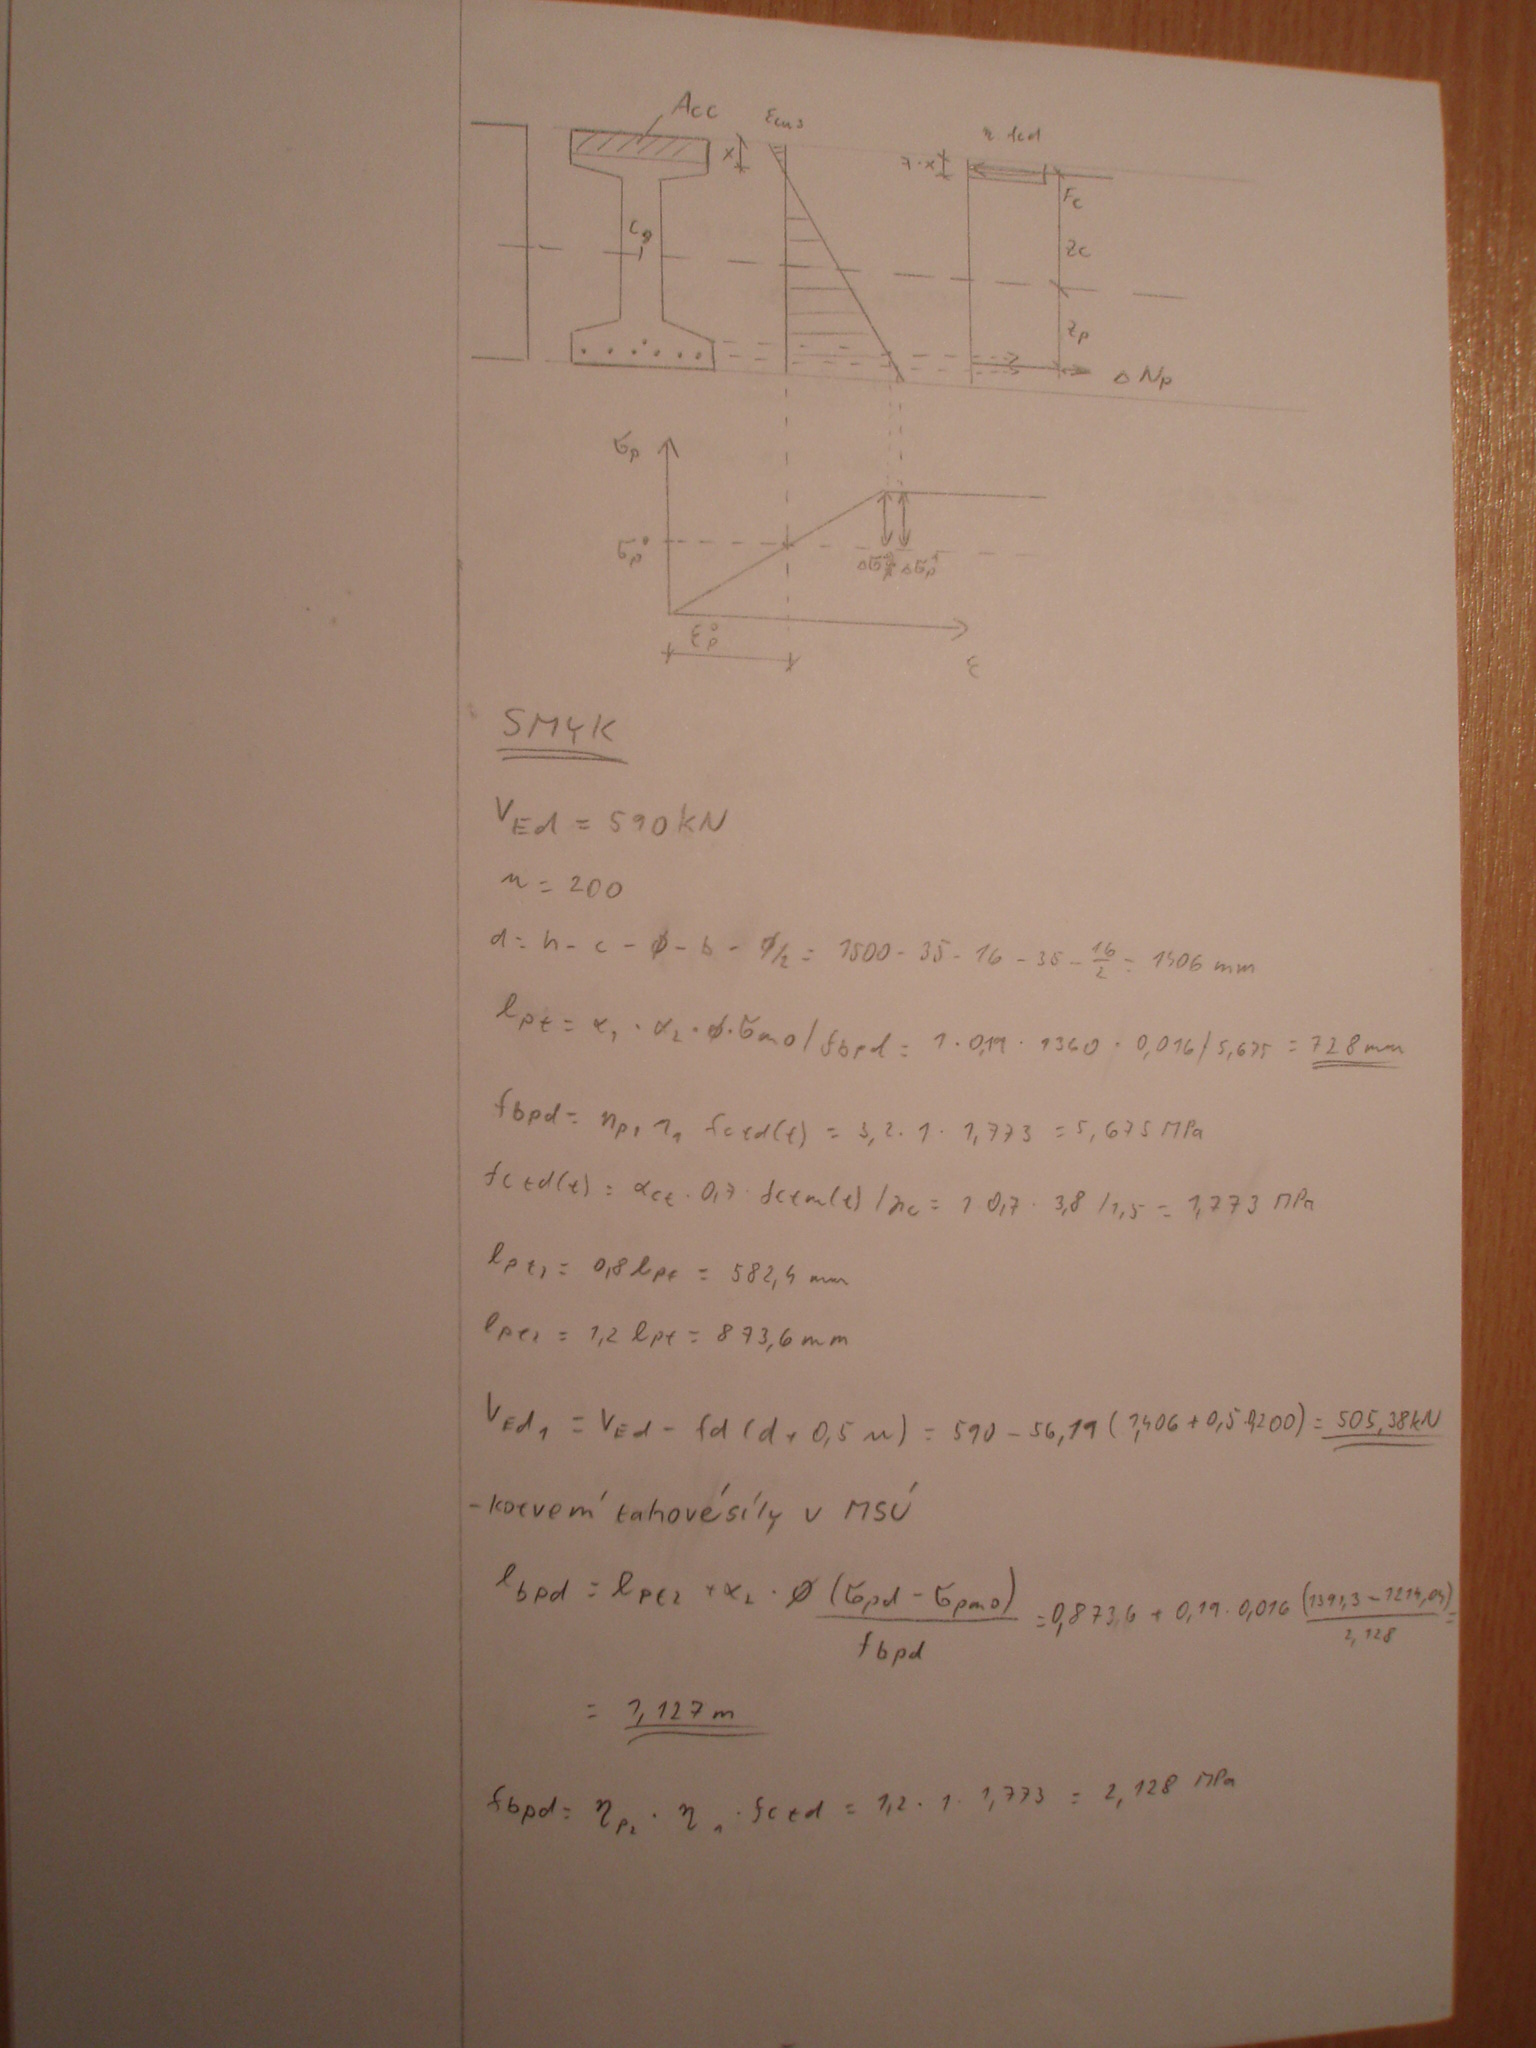 Acc
εcu3
η fcd
x
λ·x
Fc
Cg
zc
zp
ΔNp
σp
σp°
Δσp
Δσp¹
εp°
ε
SMYK
VEd = 590 kN
u = 200
d = h - c - φ - b - φ/2 = 1500 - 35 - 16 - 35 - 16/2 = 1406 mm
lpt = α1 · α2 · φ · σm0 / fbpd = 1 · 0,19 · 1360 · 0,016 / 5,675 = 728 mm
fbpd = ηp1 η1 fctd(t) = 3,2 · 1 · 1,773 = 5,675 MPa
fctd(t) = αct · 0,7 · fctm(t) / γc = 1 · 0,7 · 3,8 / 1,5 = 1,773 MPa
lpt1 = 0,8 lpt = 582,4 mm
lpt2 = 1,2 lpt = 873,6 mm
VEd1 = VEd - fd (d + 0,5 u) = 590 - 56,19 (1,406 + 0,5·0,200) = 505,38 kN
- kotvení tahové síly v MSÚ
lbpd = lpt2 + α2 · φ (σpd - σpm0) / fbpd = 0,873,6 + 0,19 · 0,016 (1391,3 - 1214,04) / 2,128 =
= 1,127 m
fbpd = ηp2 · η1 · fctd = 1,2 · 1 · 1,773 = 2,128 MPa